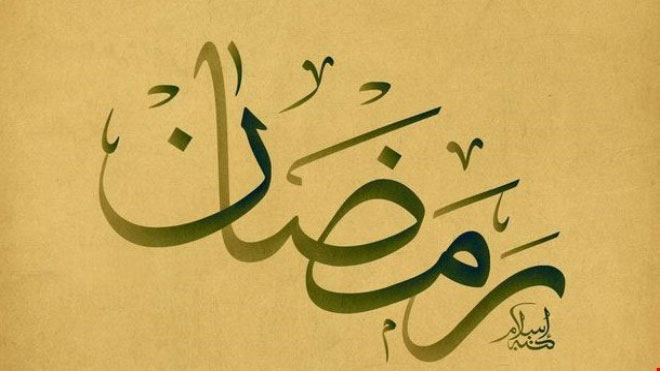 رمضان
كتبه إسلام